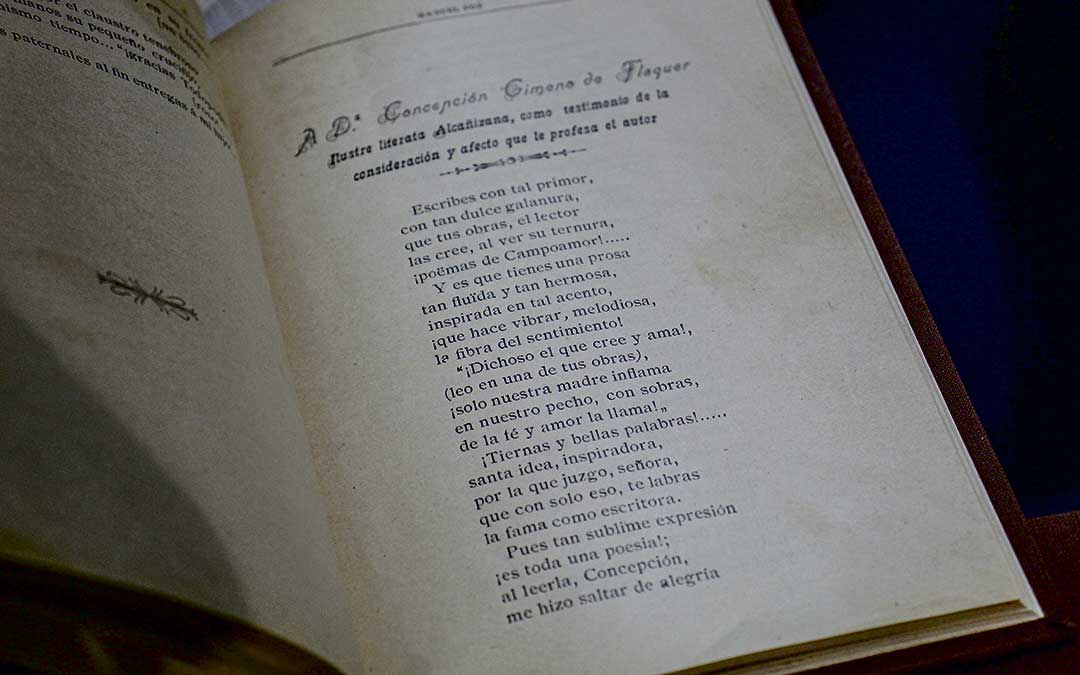 el claustro tenebroso
manos su pequeño
mismo tiempo... "¡gracias
paternales al fin entregas
A D.ª Concepción Gimeno de Flaquer
Ilustre literata Alcañizana, como testimonio de la
consideración y afecto que le profesa el autor
Escribes con tal primor,
con tan dulce galanura,
que tus obras, el lector
las cree, al ver su ternura,
¡poëmas de Campoamor!.....
Y es que tienes una prosa
tan fluïda y tan hermosa,
inspirada en tal acento,
¡que hace vibrar, melodiosa,
la fibra del sentimiento!
"¡Dichoso el que cree y ama!,
(leo en una de tus obras),
¡solo nuestra madre inflama
en nuestro pecho, con sobras,
de la fé y amor la llama!„
¡Tiernas y bellas palabras!.....
santa idea, inspiradora,
por la que juzgo, señora,
que con solo eso, te labras
la fama como escritora.
Pues tan sublime expresión
¡es toda una poesia!;
al leerla, Concepción,
me hizo saltar de alegría